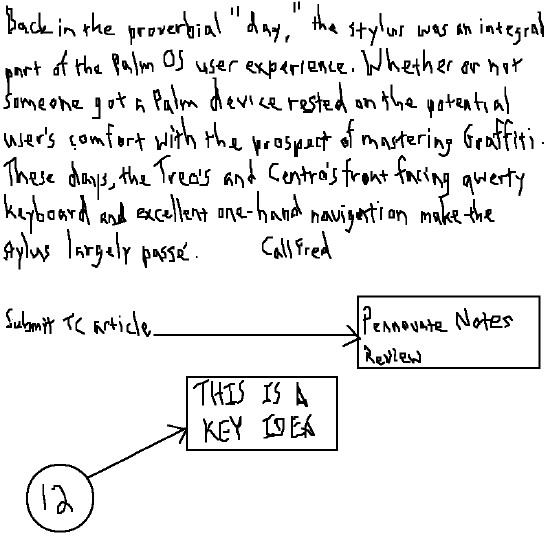 Back in the proverbial "day," the stylus was an integral
part of the Palm OS user experience. Whether or not
someone got a Palm device rested on the potential
user's comfort with the prospect of mastering Graffiti.
These days, the Treo's and Centro's front facing qwerty
keyboard and excellent one-hand navigation make the
stylus largely passé. Call Fred
Submit TC article
Pennovate Notes
Review
THIS IS A
KEY IDEA
12